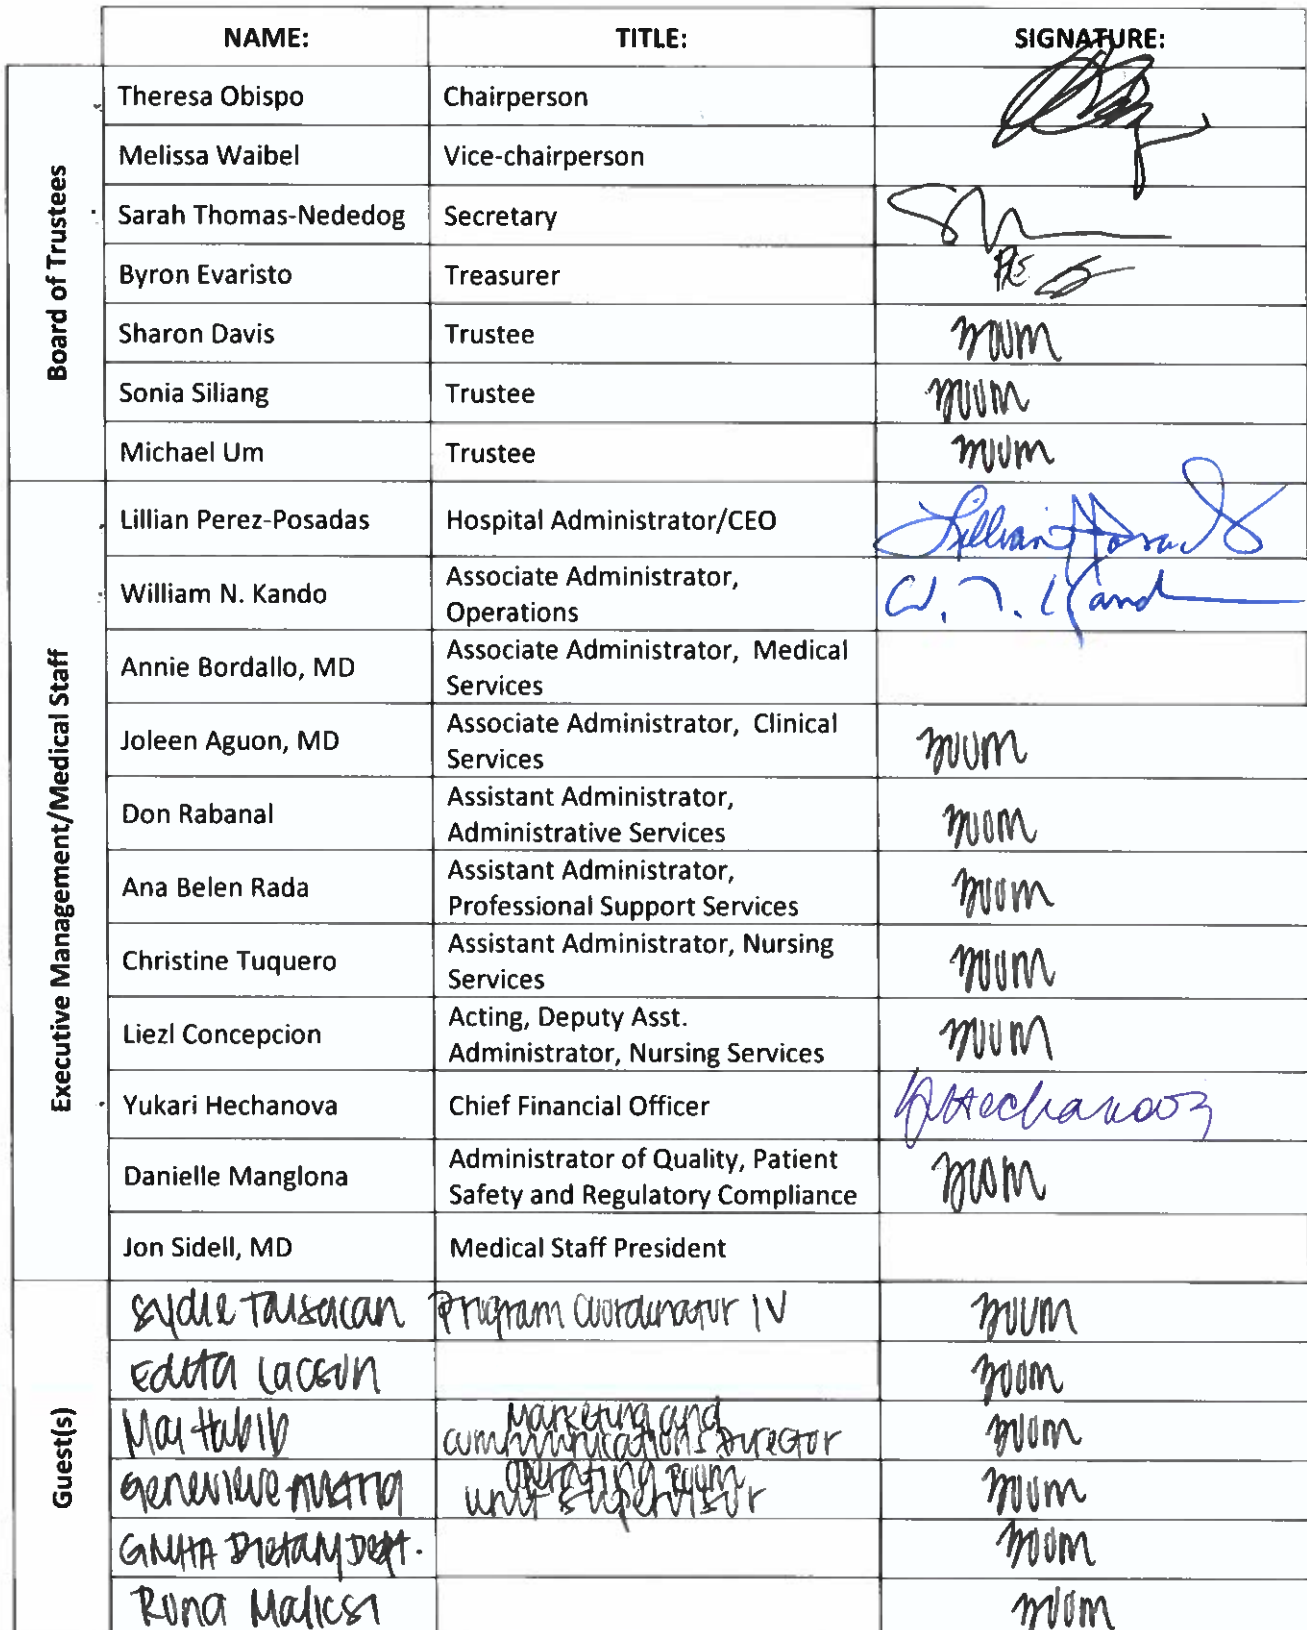 NAME: TITLE: SIGNATURE:
Board of Trustees
Theresa Obispo Chairperson
Melissa Waibel Vice-chairperson
Sarah Thomas-Nededog Secretary
Byron Evaristo Treasurer
Sharon Davis Trustee zoom
Sonia Siliang Trustee zoom
Michael Um Trustee zoom
Executive Management/Medical Staff
Lillian Perez-Posadas Hospital Administrator/CEO
William N. Kando Associate Administrator,
Operations
Annie Bordallo, MD Associate Administrator, Medical
Services
Joleen Aguon, MD Associate Administrator, Clinical
Services zoom
Don Rabanal Assistant Administrator,
Administrative Services zoom
Ana Belen Rada Assistant Administrator,
Professional Support Services zoom
Christine Tuquero Assistant Administrator, Nursing
Services zoom
Liezl Concepcion Acting, Deputy Asst.
Administrator, Nursing Services zoom
Yukari Hechanova Chief Financial Officer YHechanova
Danielle Manglona Administrator of Quality, Patient
Safety and Regulatory Compliance zoom
Jon Sidell, MD Medical Staff President
Guest(s)
Sydie Taisacan Program Coordinator IV zoom
Edita Lacson zoom
Mai Habib Marketing and
Communications Director zoom
Genevieve Operating Room
Unit Supervisor zoom
GMHA Dietary Dept. zoom
Rona Malicsi zoom